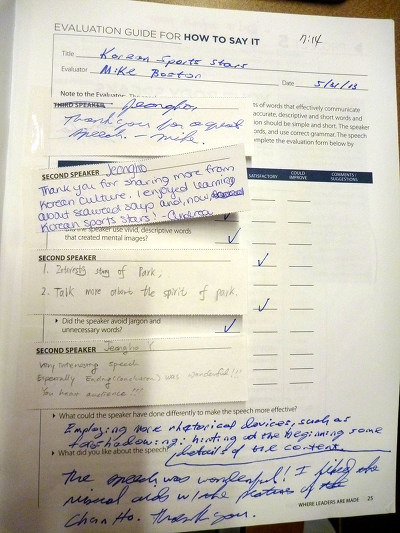 EVALUATION GUIDE FOR HOW TO SAY IT
7:14
Title Korean Sports Stars
Evaluator Mike Boston
Date 5/21/13
Note to the Evaluator: The
ts of words that effectively communicate
accurate, descriptive and short words and
ion should be simple and short. The speaker
ords, and use correct grammar. The speech
mplete the evaluation form below by
THIRD SPEAKER Jeongho
Thank you for a great
speech. – Mike.
SATISFACTORY
COULD IMPROVE
COMMENTS / SUGGESTIONS
SECOND SPEAKER Jeongho
Thank you for sharing more from
Korean culture. I enjoyed learning
about seaweed soup and, now,
Korean sports stars! - Andrea
the speaker use vivid, descriptive words
that created mental images?
SECOND SPEAKER
1. Interests story of Park,
2. Talk more about the spirit of park.
Did the speaker avoid jargon and
unnecessary words?
SECOND SPEAKER Jeongho Y
Very interesting speech
Especially Ending (conclusion) was wonderful!!!
You heart audience!!!
What could the speaker have done differently to make the speech more effective?
Employing more rhetorical devices, such as
foreshadowing: hinting at the beginning some
details of the content.
What did you like about the speech?
The speech was wonderful! I liked the
visual aids w/ the picture of
Chan Ho. Thank you.
WHERE LEADERS ARE MADE 25